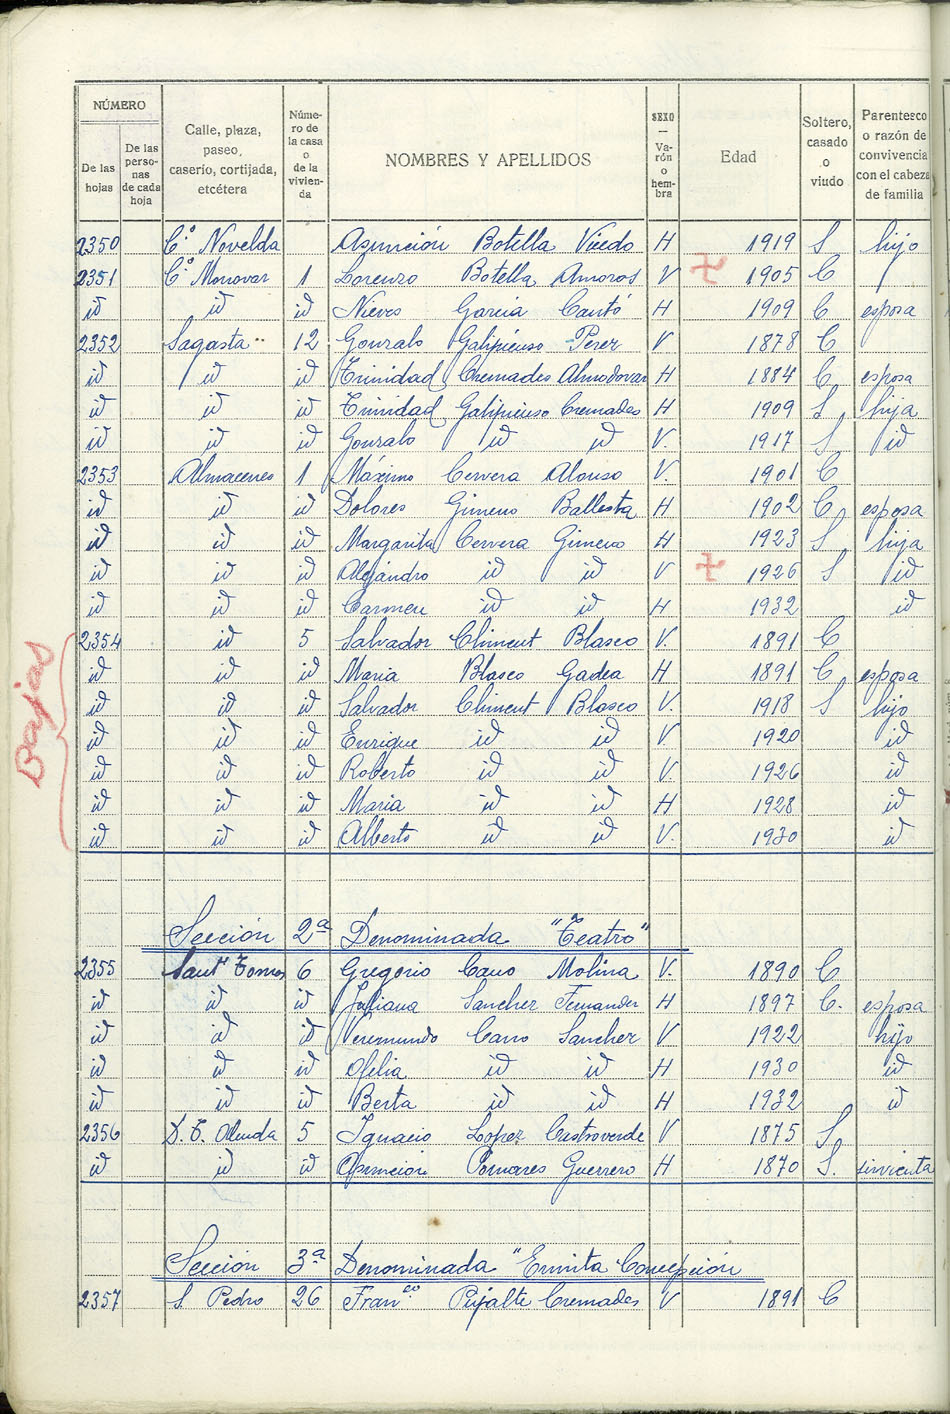 NÚMERO
De las hojas
De las perso- nas de cada hoja
Calle, plaza, paseo, caserío, cortijada, etcétera
Núme- ro de la casa o de la vivien- da
NOMBRES Y APELLIDOS
SEXO — Va- rón o hem- bra
Edad
Soltero, casado o viudo
Parentesco o razón de convivencia con el cabeza de familia
2350 C.º Novelda Asunción Botella Viedo H 1919 S hijo
2351 C.º Monovar 1 Lorenzo Botella Amoros V 1905 C
id id id Nieves Garcia Cantó H 1909 C esposa
2352 Sagasta 12 Gonzalo Galipienso Perez V 1878 C
id id id Trinidad Cremades Almodovar H 1884 C esposa
id id id Trinidad Galipienso Cremades H 1909 S hija
id id id Gonzalo id id V. 1917 S id
2353 Almacenes 1 Máximo Cervera Alonso V. 1901 C
id id id Dolores Gimeno Ballesta H 1902 C esposa
id id id Margarita Cervera Gimeno H 1923 S hija
id id id Alejandro id id V 1926 S id
id id id Carmen id id H 1932 id
Bajas
2354 id 5 Salvador Climent Blasco V. 1891 C
id id id Maria Blasco Gadea H 1891 C esposa
id id id Salvador Climent Blasco V. 1918 S hijo
id id id Enrique id id V 1920 id
id id id Roberto id id V. 1926 id
id id id Maria id id H 1928 id
id id id Alberto id id V. 1930 id
Sección 2ª Denominada "Teatro"
2355 Santº Tomas 6 Gregorio Cano Molina V. 1890 C
id id id Juliana Sanchez Fernander H 1897 C. esposa
id id id Veremundo Cano Sanchez V 1922 hijo
id id id Ofelia id id H 1930 id
id id id Berta id id H 1932 id
2356 D. T. 5 Ignacio Lopez Castroverde V 1875 S
id id id Asunción Pomares Guerrero H 1870 S. sirvienta
Sección 3ª Denominada "Ermita Concepción
2357 S. Pedro 26 Franᶜᵒ Pujalte Cremades V 1891 C